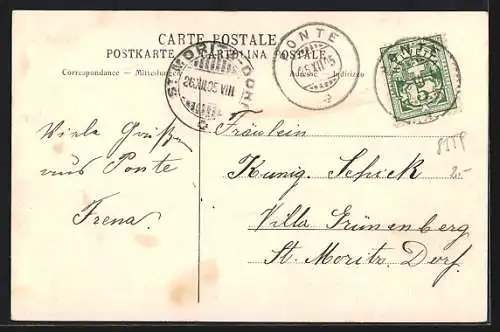 CARTE POSTALE
POSTKARTE CARTOLINA POSTALE
Correspondance — Mitteilungen Adresse — Indirizzo
ST. MORITZ-DORF
26.XII.05. VIII
PONTE
Viele Grüße
aus Ponte
Frena.
Fräulein
Kunig. Schick
Villa Grünenberg
St. Moritz Dorf.